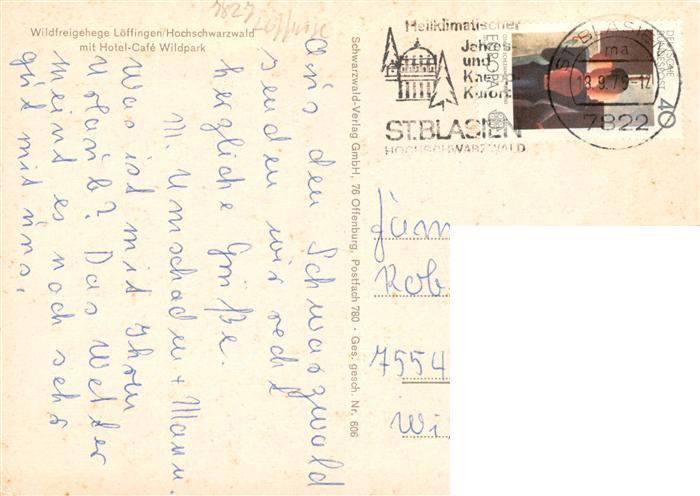 7827 Löffing
Wildfreigehege Löffingen/Hochschwarzwald
mit Hotel-Café Wildpark
Aus den Schwarzwald
senden wir recht
herzliche Grüße.
M. Umschaden + Mann.
Was ist mit Ihrem
Urlaub? Das Wetter
meint es noch sehr
gut mit uns.
Schwarzwald-Verlag GmbH, 76 Offenburg, Postfach 780 · Ges. gesch. Nr. 606
Heilklimatischer
Jahres-
und
Kneipp-
Kurort
ST. BLASIEN
HOCHSCHWARZWALD
ST. BLASIEN
ma
.9.75-12
7822
EUROPA
DEUTSCHE
BUNDESPOST
40
Fam
Rob
7554
Wi